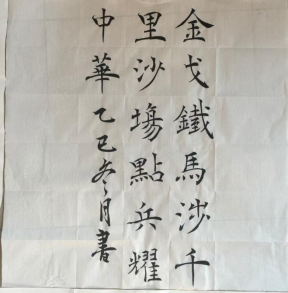 金戈鐵馬涉千
里沙場點兵耀
中華乙巳冬月書